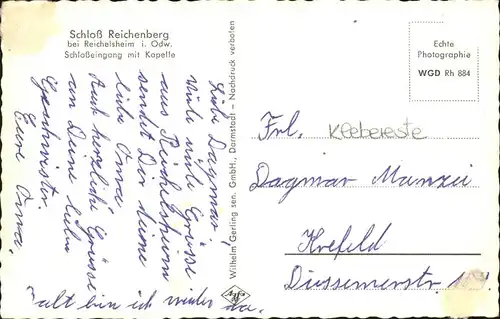 Schloß Reichenberg
bei Reichelsheim i. Odw.
Schloßeingang mit Kapelle
Liebe Dagmar!
Viele viele Grüsse
aus Reichelsheim
sendet Dir deine
liebe Oma.
Auch herzliche Grüsse
an Deine lieben
Geschwistr.
Eure Oma.
alt bin ich wieder da.
Wilhelm Gerling sen. GmbH., Darmstadt – Nachdruck verboten
Agfa
Echte
Photographie
WGD Rh 884
Frl. Klebereste
Dagmar Manzei
Krefeld
Diessemerstr.